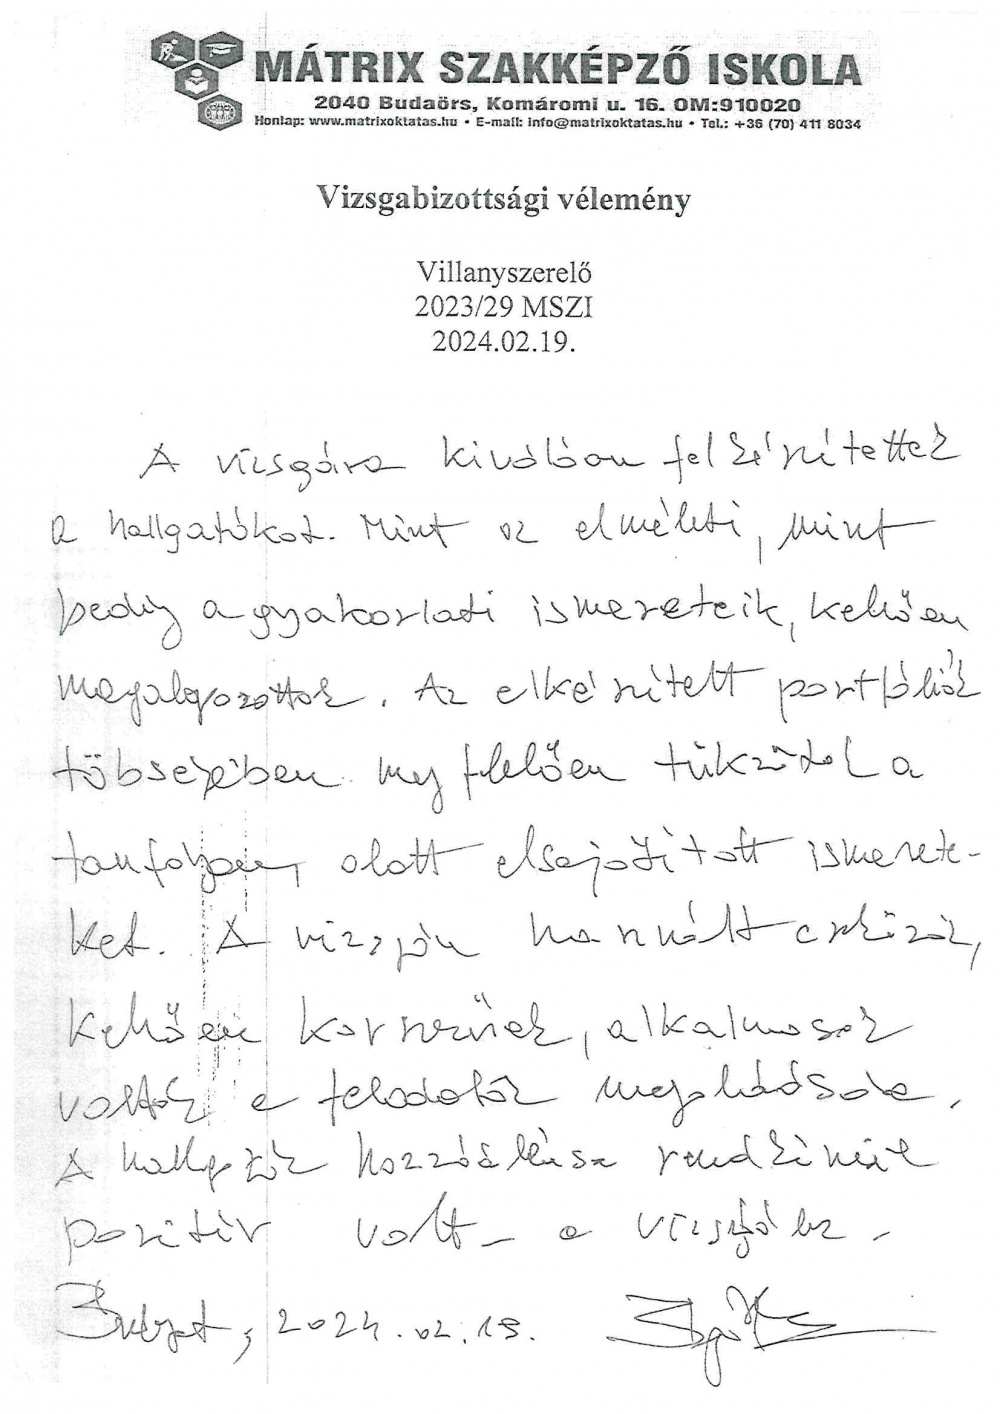 MÁTRIX SZAKKÉPZŐ ISKOLA
2040 Budaörs, Komáromi u. 16. OM:910020
Honlap: www.matrixoktatas.hu • E-mail: info@matrixoktatas.hu • Tel.: +36 (70) 411 8034
Vizsgabizottsági vélemény
Villanyszerelő
2023/29 MSZI
2024.02.19.
A vizsgára kiválóan felkészítették
a hallgatókat. Mint az elméleti, mint
pedig a gyakorlati ismereteik, kellően
megalapozottak. Az elkészített portfóliók
töbségében megfelelően tükrözték a
tanfolyam alatt elsajátított ismerete-
ket. A vizsgán használt eszközök,
kellően korszerűek, alkalmasak
voltak a feladatok megoldására.
A hallgatók hozzáállása rendkívül
pozitív volt a vizsgához.
2024.02.19.